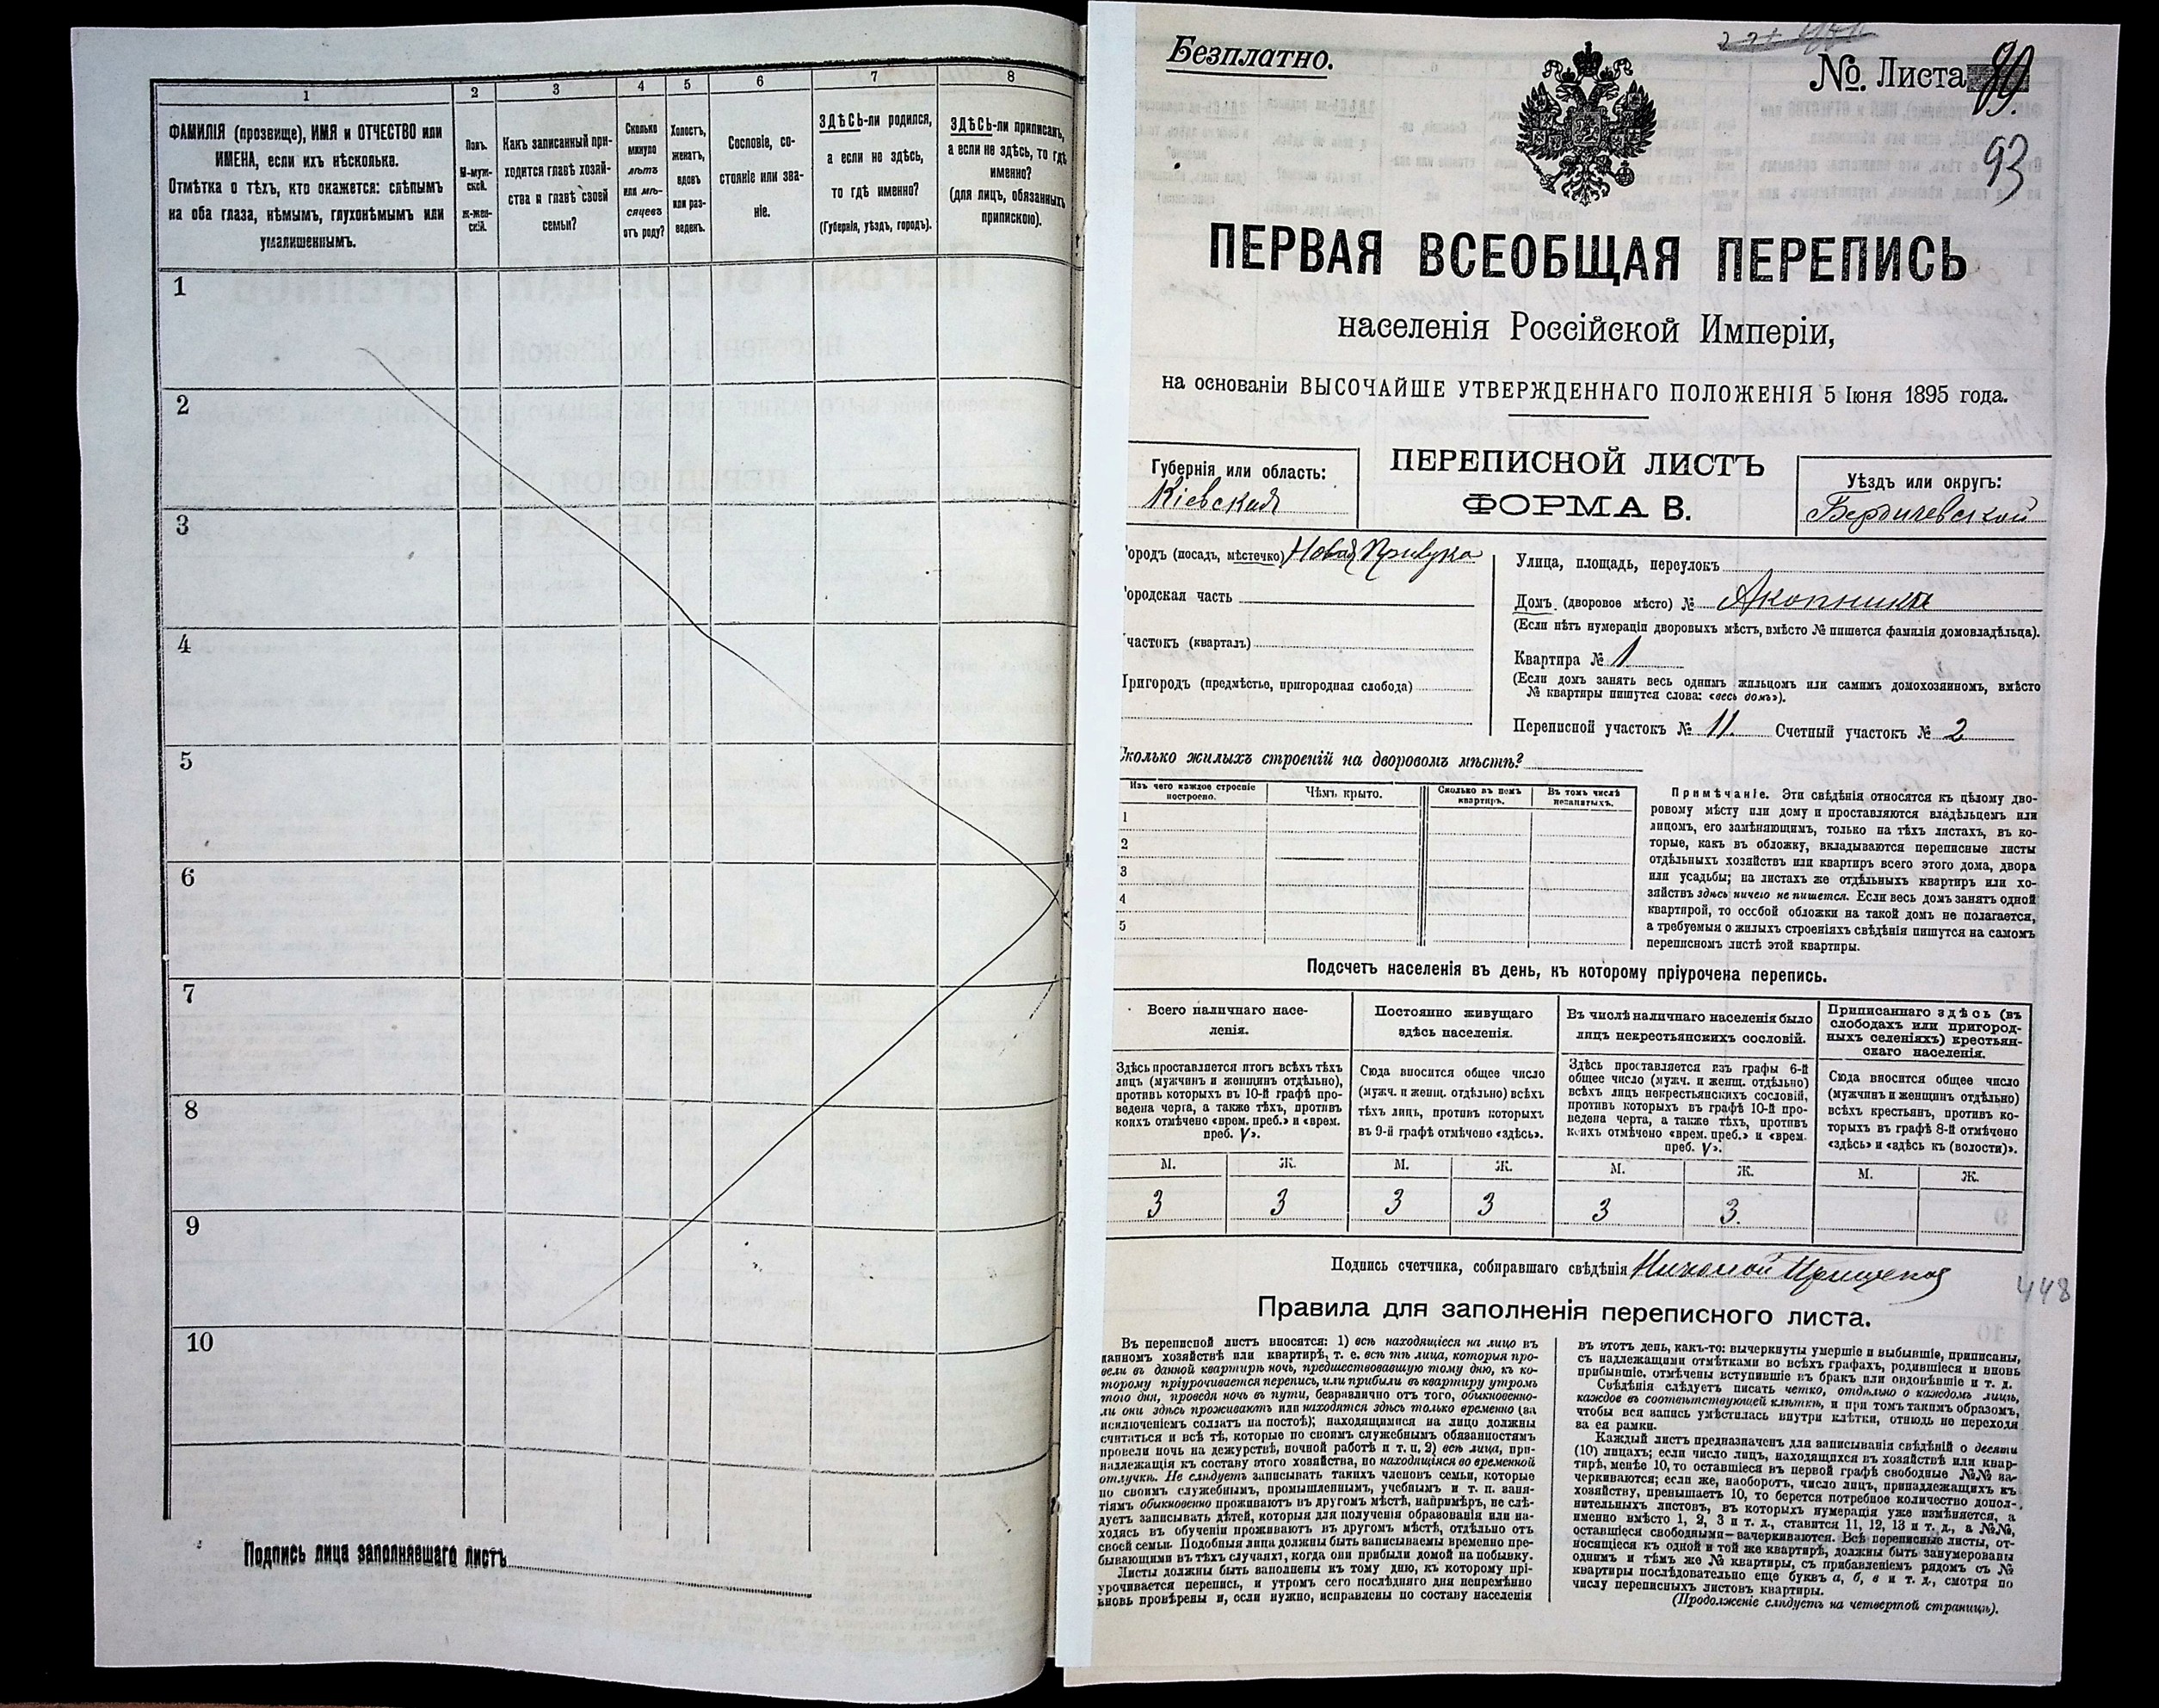 1
2
3
4
5
6
7
8
ФАМИЛІЯ (прозвище), ИМЯ и ОТЧЕСТВО или
ИМЕНА, если ихъ нѣсколько.
Отмѣтка о тѣхъ, кто окажется: слѣпымъ
на оба глаза, нѣмымъ, глухонѣмымъ или
умалишеннымъ.
Полъ.
М-муж-
ской.
ж-жен-
скій.
Какъ записанный при-
ходится главѣ хозяй-
ства и главѣ своей
семьи?
Сколько
минуло
лѣтъ
или мѣ-
сяцевъ
отъ роду?
Холостъ,
женатъ,
вдовъ
или раз-
веденъ.
Сословіе, со-
стояніе или зва-
ніе.
ЗДѢСЬ-ли родился,
а если не здѣсь,
то гдѣ именно?
(Губернія, уѣздъ, городъ).
ЗДѢСЬ-ли приписанъ,
а если не здѣсь, то гдѣ
именно?
(для лицъ, обязанныхъ
припискою).
1
2
3
4
5
6
7
8
9
10
Подпись лица заполнявшаго листъ
Безплатно.
№ Листа
93
ПЕРВАЯ ВСЕОБЩАЯ ПЕРЕПИСЬ
населенія Россійской Имперіи,
на основаніи ВЫСОЧАЙШЕ УТВЕРЖДЕННАГО ПОЛОЖЕНІЯ 5 Іюня 1895 года.
Губернія или область:
Кіевская
ПЕРЕПИСНОЙ ЛИСТЪ
ФОРМА В.
Уѣздъ или округъ:
Бердичевской
ородъ (посадъ, мѣстечко) Новая Прилука
ородская часть
частокъ (кварталъ)
ригородъ (предмѣстье, пригородная слобода)
Улица, площадь, переулокъ
Домъ (дворовое мѣсто) №
(Если нѣтъ нумераціи дворовыхъ мѣстъ, вмѣсто № пишется фамилія домовладѣльца).
Квартира № 1
(Если домъ занятъ весь однимъ жильцомъ или самимъ домохозяиномъ, вмѣсто
№ квартиры пишутся слова: «весь домъ»).
Переписной участокъ № 11. Счетный участокъ № 2
Сколько жилыхъ строеній на дворовомъ мѣстѣ?
Изъ чего каждое строеніе
построено.
Чѣмъ крыто.
Сколько въ немъ
квартиръ.
Въ томъ числѣ
незанятыхъ.
1
2
3
4
5
Примѣчаніе. Эти свѣдѣнія относятся къ цѣлому дво-
ровому мѣсту или дому и проставляются владѣльцемъ или
лицомъ, его замѣняющимъ, только на тѣхъ листахъ, въ ко-
торые, какъ въ обложку, вкладываются переписные листы
отдѣльныхъ хозяйствъ или квартиръ всего этого дома, двора
или усадьбы; на листахъ же отдѣльныхъ квартиръ или хо-
зяйствъ здѣсь ничего не пишется. Если весь домъ занятъ одной
квартирой, то особой обложки на такой домъ не полагается,
а требуемыя о жилыхъ строеніяхъ свѣдѣнія пишутся на самомъ
переписномъ листѣ этой квартиры.
Подсчетъ населенія въ день, къ которому пріурочена перепись.
Всего наличнаго насе-
ленія.
Постоянно живущаго
здѣсь населенія.
Въ числѣ наличнаго населенія было
лицъ некрестьянскихъ сословій.
Приписаннаго здѣсь (въ
слободахъ или пригород-
ныхъ селеніяхъ) крестьян-
скаго населенія.
Здѣсь проставляется итогъ всѣхъ тѣхъ
лицъ (мужчинъ и женщинъ отдѣльно),
противъ которыхъ въ 10-й графѣ про-
ведена черта, а также тѣхъ, противъ
коихъ отмѣчено «врем. преб.» и «врем.
преб. V».
Сюда вносится общее число
(мужч. и женщ. отдѣльно) всѣхъ
тѣхъ лицъ, противъ которыхъ
въ 9-й графѣ отмѣчено «здѣсь».
Здѣсь проставляется изъ графы 6-й
общее число (мужч. и женщ. отдѣльно)
всѣхъ лицъ некрестьянскихъ сословій,
противъ которыхъ въ графѣ 10-й про-
ведена черта, а также тѣхъ, противъ
коихъ отмѣчено «врем. преб.» и «врем.
преб. V».
Сюда вносится общее число
(мужчинъ и женщинъ отдѣльно)
всѣхъ крестьянъ, противъ ко-
торыхъ въ графѣ 8-й отмѣчено
«здѣсь» и «здѣсь къ (волости)».
М. Ж. М. Ж. М. Ж. М. Ж.
3 3 3 3 3 3.
Подпись счетчика, собиравшаго свѣдѣнія Николай
448
Правила для заполненія переписного листа.
Въ переписной листъ вносятся: 1) всѣ находящіеся на лицо въ
данномъ хозяйствѣ или квартирѣ, т. е. всѣ тѣ лица, которыя про-
вели въ данной квартирѣ ночь, предшествовавшую тому дню, къ ко-
торому пріурочивается перепись, или прибыли въ квартиру утромъ
того дня, проведя ночь въ пути, безразлично отъ того, обыкновенно-
ли они здѣсь проживаютъ или находятся здѣсь только временно (за
исключеніемъ солдатъ на постоѣ); находящимися на лицо должны
считаться и всѣ тѣ, которые по своимъ служебнымъ обязанностямъ
провели ночь на дежурствѣ, ночной работѣ и т. п. 2) всѣ лица, при-
надлежащія къ составу этого хозяйства, но находящіяся во временной
отлучкѣ. Не слѣдуетъ записывать такихъ членовъ семьи, которые
по своимъ служебнымъ, промышленнымъ, учебнымъ и т. п. заня-
тіямъ обыкновенно проживаютъ въ другомъ мѣстѣ, напримѣръ, не слѣ-
дуетъ записывать дѣтей, которыя для полученія образованія или на-
ходясь въ обученіи проживаютъ въ другомъ мѣстѣ, отдѣльно отъ
своей семьи. Подобныя лица должны быть записываемы временно пре-
бывающими въ тѣхъ случаяхъ, когда они прибыли домой на побывку.
Листы должны быть заполнены къ тому дню, къ которому прі-
урочивается перепись, и утромъ сего послѣдняго дня непремѣнно
вновь провѣрены и, если нужно, исправлены по составу населенія
въ этотъ день, какъ-то: вычеркнуты умершіе и выбывшіе, приписаны,
съ надлежащими отмѣтками во всѣхъ графахъ, родившіеся и вновь
прибывшіе, отмѣчены вступившіе въ бракъ или овдовѣвшіе и т. д.
Свѣдѣнія слѣдуетъ писать четко, отдѣльно о каждомъ лицѣ,
каждое въ соотвѣтствующей клѣткѣ, и при томъ такимъ образомъ,
чтобы вся запись умѣстилась внутри клѣтки, отнюдь не переходя
за ея рамки.
Каждый листъ предназначенъ для записыванія свѣдѣній о десяти
(10) лицахъ; если число лицъ, находящихся въ хозяйствѣ или квар-
тирѣ, менѣе 10, то оставшіеся въ первой графѣ свободные №№ за-
черкиваются; если же, наоборотъ, число лицъ, принадлежащихъ къ
хозяйству, превышаетъ 10, то берется потребное количество допол-
нительныхъ листовъ, въ которыхъ нумерація уже измѣняется, а
именно вмѣсто 1, 2, 3 и т. д., ставится 11, 12, 13 и т. д., а №№,
оставшіеся свободными—зачеркиваются. Всѣ переписные листы, от-
носящіеся къ одной и той же квартирѣ, должны быть занумерованы
однимъ и тѣмъ же № квартиры, съ прибавленіемъ рядомъ съ №
квартиры послѣдовательно еще буквъ а, б, в и т. д., смотря по
числу переписныхъ листовъ квартиры.
(Продолженіе слѣдуетъ на четвертой страницѣ).